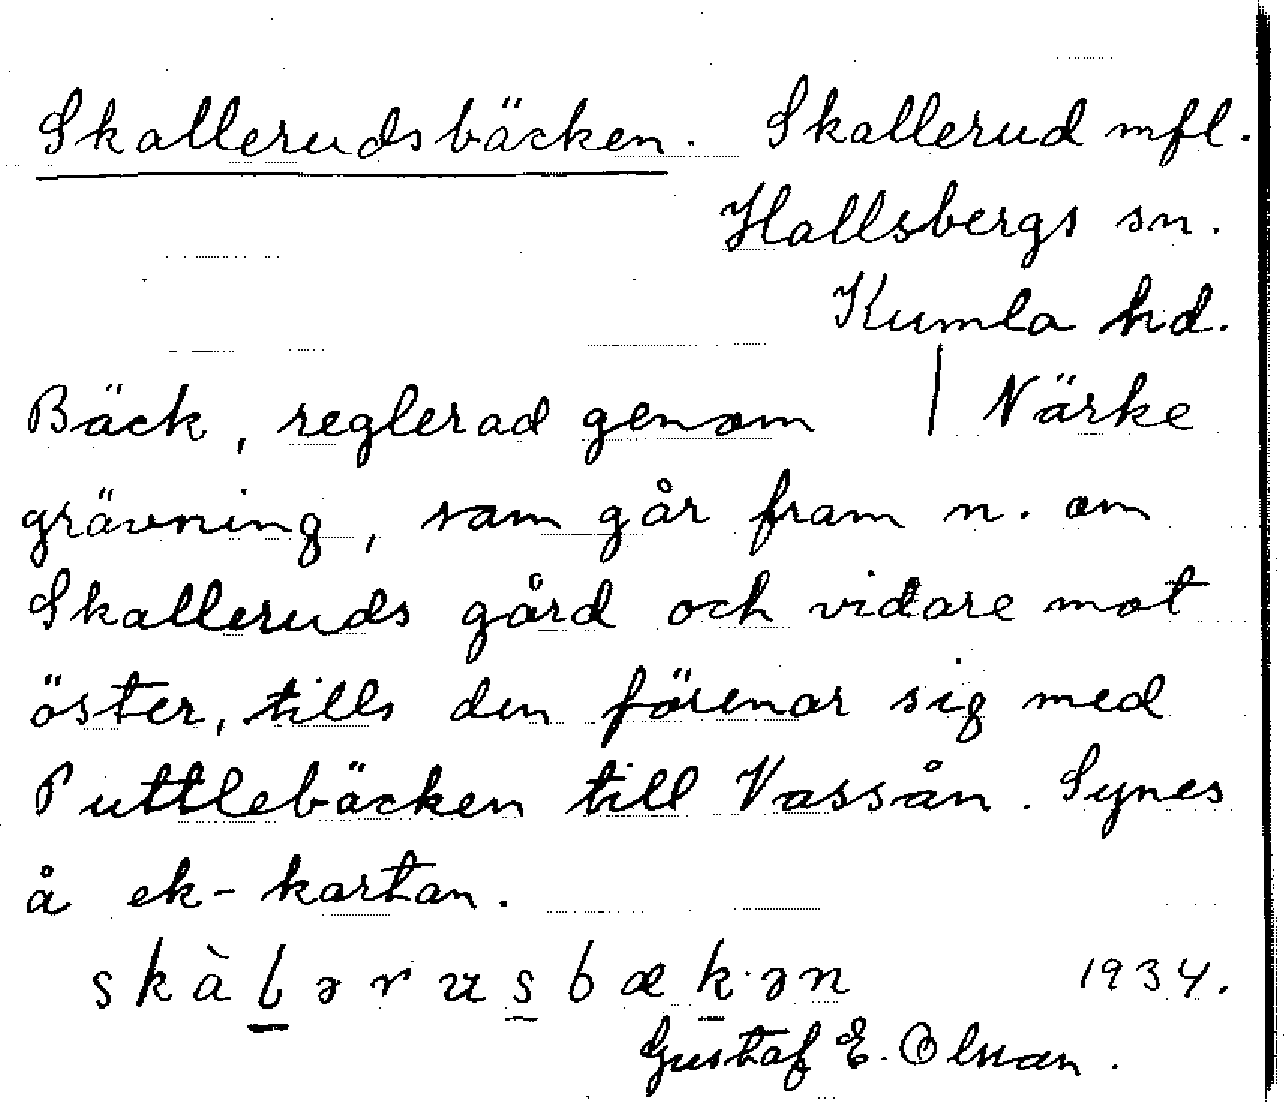 Skallerudsbäcken. Skallerud mfl.
Hallsbergs sn.
Kumla hd.
Bäck, reglerad genom | Närke
grävning, som går fram n. om
Skalleruds gård och vidare mot
öster, tills den förenar sig med
Puttlebäcken till Vassån. Synes
å ek-kartan.
skàlərusbæk·ən 1934.
Gustaf E. Olsson.